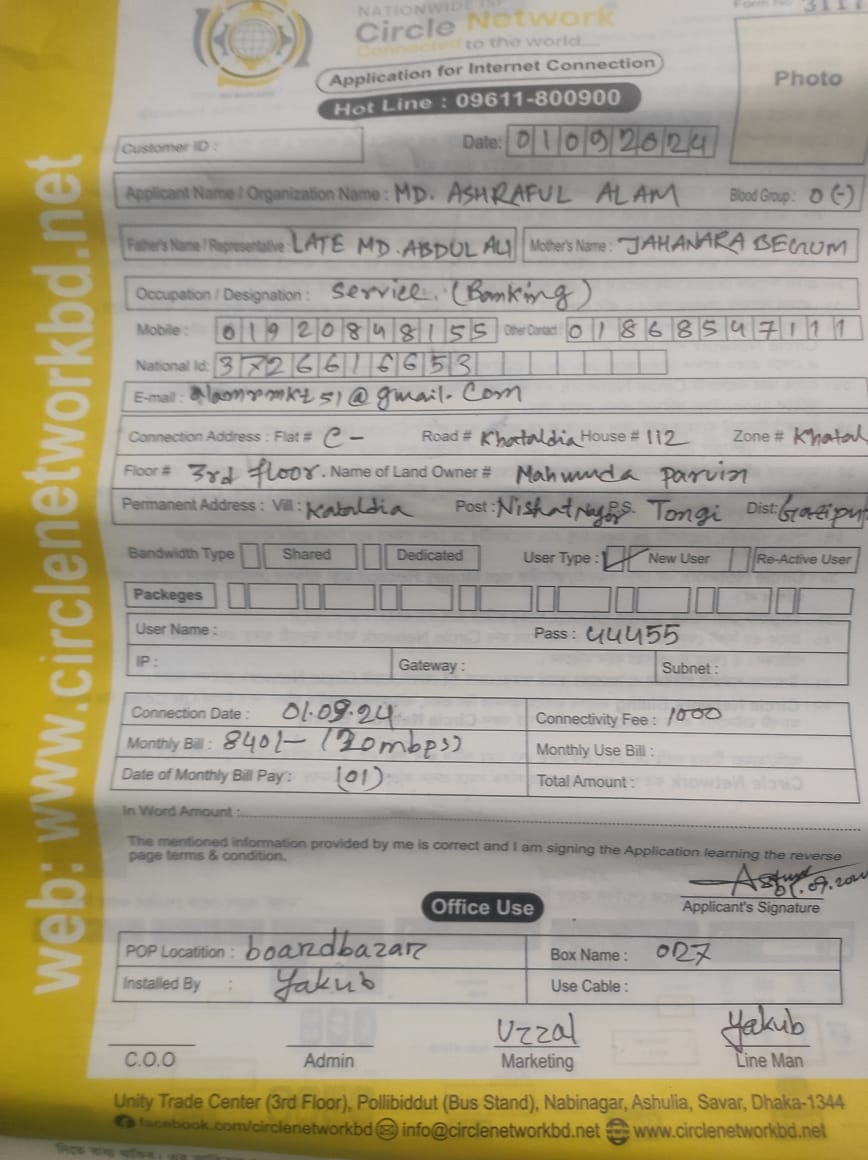 NATIONWIDE ISP
Form No 3111
Circle Network
Connected to the world....
Application for Internet Connection
Photo
Hot Line : 09611-800900
Customer ID :
Date: 01092024
Applicant Name / Organization Name : MD. ASHRAFUL ALAM Blood Group : O (-)
Father's Name / Representative : LATE MD. ABDUL ALI Mother's Name : JAHANARA BEGUM
Occupation / Designation : Service. (Banking)
Mobile : 01920848155 Other Contact : 01868547111
National Id: 3726616653
E-mail : alamrmkt51@gmail.com
Connection Address : Flat # C - Road # Khataldia House # 112 Zone # Khatal
Floor # 3rd floor. Name of Land Owner # Mahmuda parvin
Permanent Address : Vill : Kataldia Post : Nishat Nagor P.S. Tongi Dist: Gazipur
Bandwidth Type Shared Dedicated User Type : New User Re-Active User
Packeges
User Name : Pass : 44455
IP : Gateway : Subnet :
Connection Date : 01.09.24 Connectivity Fee : 1000
Monthly Bill : 840/- (20mbps) Monthly Use Bill :
Date of Monthly Bill Pay : (01) Total Amount :
In Word Amount :
The mentioned information provided by me is correct and I am signing the Application learning the reverse
page terms & condition.
Applicant's Signature
Office Use
POP Locatition : boardbazar Box Name : 027
Installed By : Yakub Use Cable :
Uzzal Yakub
C.O.O Admin Marketing Line Man
Unity Trade Center (3rd Floor), Pollibiddut (Bus Stand), Nabinagar, Ashulia, Savar, Dhaka-1344
facebook.com/circlenetworkbd info@circlenetworkbd.net www.circlenetworkbd.net
web: www.circlenetworkbd.net